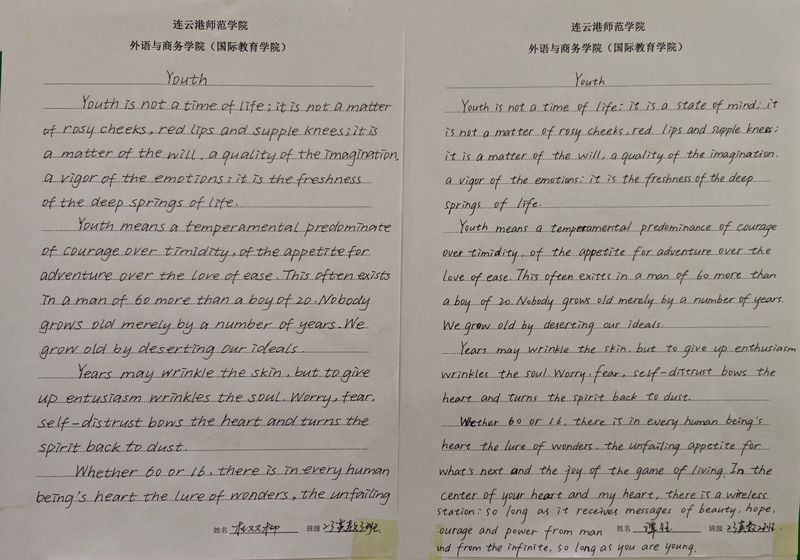 连云港师范学院
外语与商务学院（国际教育学院）
Youth
Youth is not a time of life; it is not a matter
of rosy cheeks, red lips and supple knees; it is
a matter of the will, a quality of the imagination,
a vigor of the emotions; it is the freshness
of the deep springs of life.
Youth means a temperamental predominate
of courage over timidity, of the appetite for
adventure over the love of ease. This often exists
in a man of 60 more than a boy of 20. Nobody
grows old merely by a number of years. We
grow old by deserting our ideals.
Years may wrinkle the skin, but to give
up entusiasm wrinkles the soul. Worry, fear,
self-distrust bows the heart and turns the
spirit back to dust.
Whether 60 or 16, there is in every human
being's heart the lure of wonders, the unfailing
姓名 班级
连云港师范学院
外语与商务学院（国际教育学院）
Youth
Youth is not a time of life; it is a state of mind; it
is not a matter of rosy cheeks, red lips and supple knees;
it is a matter of the will, a quality of the imagination,
a vigor of the emotions; it is the freshness of the deep
springs of life.
Youth means a temperamental predominance of courage
over timidity, of the appetite for adventure over the
love of ease. This often exists in a man of 60 more than
a boy of 20. Nobody grows old merely by a number of years.
We grow old by deserting our ideals.
Years may wrinkle the skin, but to give up enthusiasm
wrinkles the soul. Worry, fear, self-distrust bows the
heart and turns the spirit back to dust.
Whether 60 or 16, there is in every human being's
heart the lure of wonders, the unfailing appetite for
what's next and the joy of the game of living. In the
center of your heart and my heart, there is a wireless
station: so long as it receives messages of beauty, hope,
ourage and power from man 姓名 班级
nd from the infinite, so long as you are young.